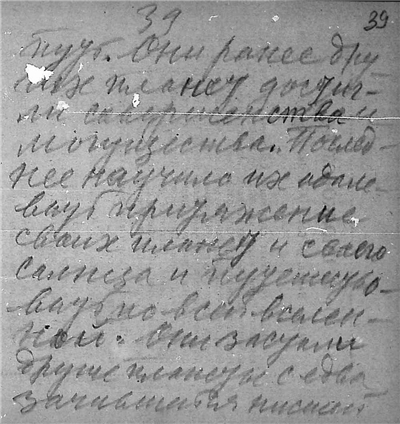 39 39
пут. Они ранее дру
гих планет достиг-
ли совершенства и
могущества. Послед-
нее научило их одоле-
вать притяжение
своих планет и своего
солнца и путешество-
вать по всей вселен-
ной. Они застали
другие планеты с едва
зачившейся жизнью